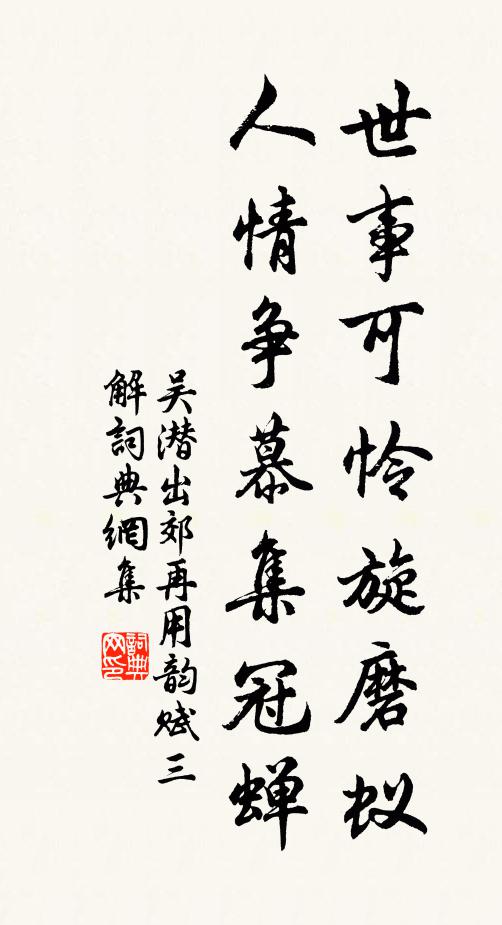 世事可怜旋磨蚁
人情争慕集冠蝉
吴潜出郊再用韵赋三
解詞典網集
詞典
网印